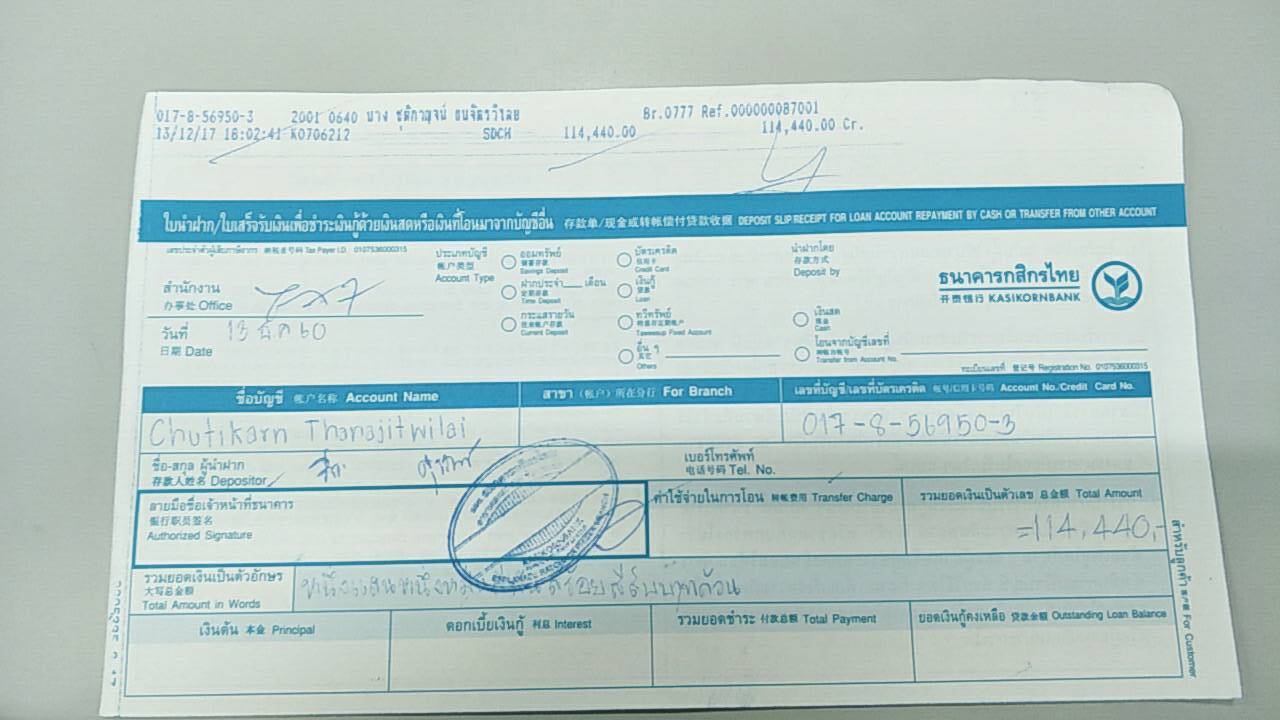 017-8-56950-3 2001 0640 นาง ชุติกาญจน์ ธนจิตรวิไลย Br.0777 Ref.000000087001
13/12/17 18:02:41 K0706212 SDCH 114,440.00 114,440.00 Cr.
ใบนำฝาก/ใบเสร็จรับเงินเพื่อชำระเงินกู้ด้วยเงินสดหรือเงินที่โอนมาจากบัญชีอื่น 存款单/现金或转帐偿付贷款收据 DEPOSIT SLIP/RECEIPT FOR LOAN ACCOUNT REPAYMENT BY CASH OR TRANSFER FROM OTHER ACCOUNT
เลขประจำตัวผู้เสียภาษีอากร 纳税者号码 Tax Payer I.D. 0107536000315
สำนักงาน
办事处 Office
วันที่ 13 ธ.ค 60
日期 Date
ประเภทบัญชี
帐户类型
Account Type
ออมทรัพย์
储蓄存款
Savings Deposit
ฝากประจำ เดือน
定期存款
Time Deposit
กระแสรายวัน
Current Deposit
บัตรเครดิต
信用卡
Credit Card
เงินกู้
贷款
Loan
ทวีทรัพย์
Taweesup Fixed Account
อื่น ๆ
其它
Others
นำฝากโดย
存款方式
Deposit by
เงินสด
现金
Cash
โอนจากบัญชีเลขที่
Transfer from Account No.
ธนาคารกสิกรไทย
开泰银行 KASIKORNBANK
ทะเบียนเลขที่ 登记号 Registration No. 0107536000315
ชื่อบัญชี 帐户名称 Account Name
สาขา (帐户) 所在分行 For Branch
เลขที่บัญชี/เลขที่บัตรเครดิต 帐号/信用卡号码 Account No./Credit Card No.
Chutikarn Thanajitwilai
017-8-56950-3
ชื่อ-สกุล ผู้นำฝาก
存款人姓名 Depositor
เบอร์โทรศัพท์
电话号码 Tel. No.
ลายมือชื่อเจ้าหน้าที่ธนาคาร
银行职员签名
Authorized Signature
ค่าใช้จ่ายในการโอน 转帐费用 Transfer Charge
รวมยอดเงินเป็นตัวเลข 总金额 Total Amount
=114,440.-
รวมยอดเงินเป็นตัวอักษร
大写总金额
Total Amount in Words
เงินต้น 本金 Principal
ดอกเบี้ยเงินกู้ 利息 Interest
รวมยอดชำระ 付款总额 Total Payment
ยอดเงินกู้คงเหลือ 贷款余额 Outstanding Loan Balance
สำหรับลูกค้า 客户联 For Customer